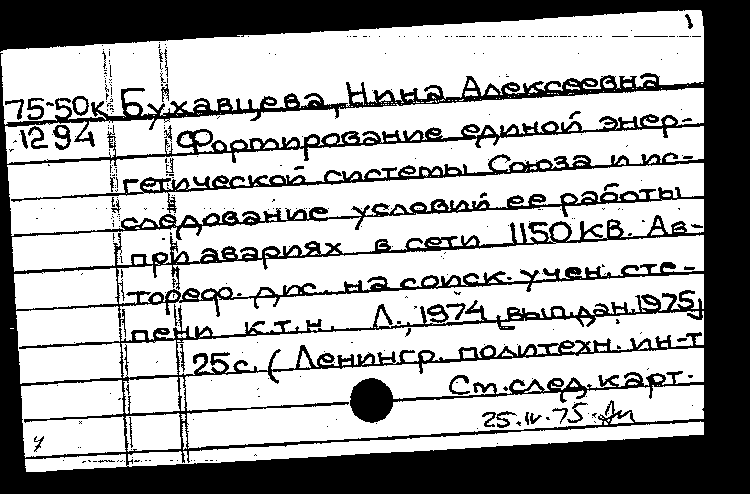 1
75-50к Бухавцева, Нина Алексеевна
1294 Формирование единой энер-
гетической системы Союза и ис-
следование условий ее работы
при авариях в сети 1150 кв. Ав-
тореф. дис. на соиск. учен. сте-
пени к.т.н. Л., 1974, [вып. дан. 1975]
25с. (Ленингр. политехн. ин-т
См. след. карт.
25.IV.75.